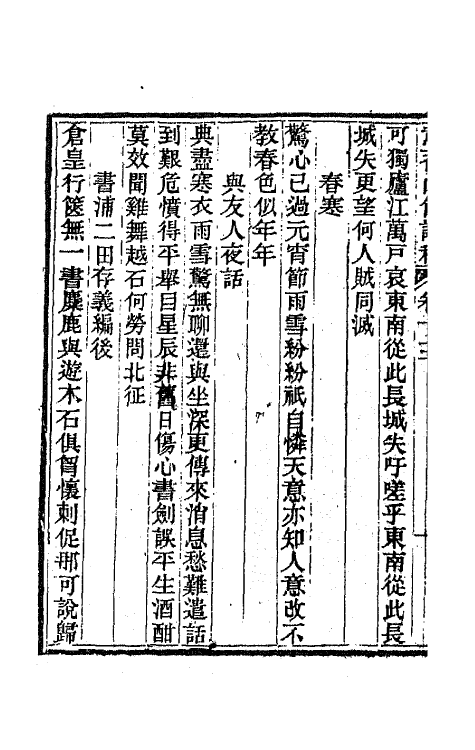 可獨廬江萬戸哀東南從此長城失吁嗟乎東南從此長
城失更望何人賊同滅
春寒
驚心已過元宵節雨雪粉粉祇自憐天意亦知人意改不
教春色似年年
與友人夜話
典盡寒衣雨雪驚無聊還與坐深更傳來消息愁難遣話
到艱危憤得平舉目星辰非舊日傷心書劍誤平生酒酣
莫效聞雞舞越石何勞問北征
書浦二田存義編後
倉皇行篋無一書麋鹿與遊木石俱胷懷刺促那可說歸